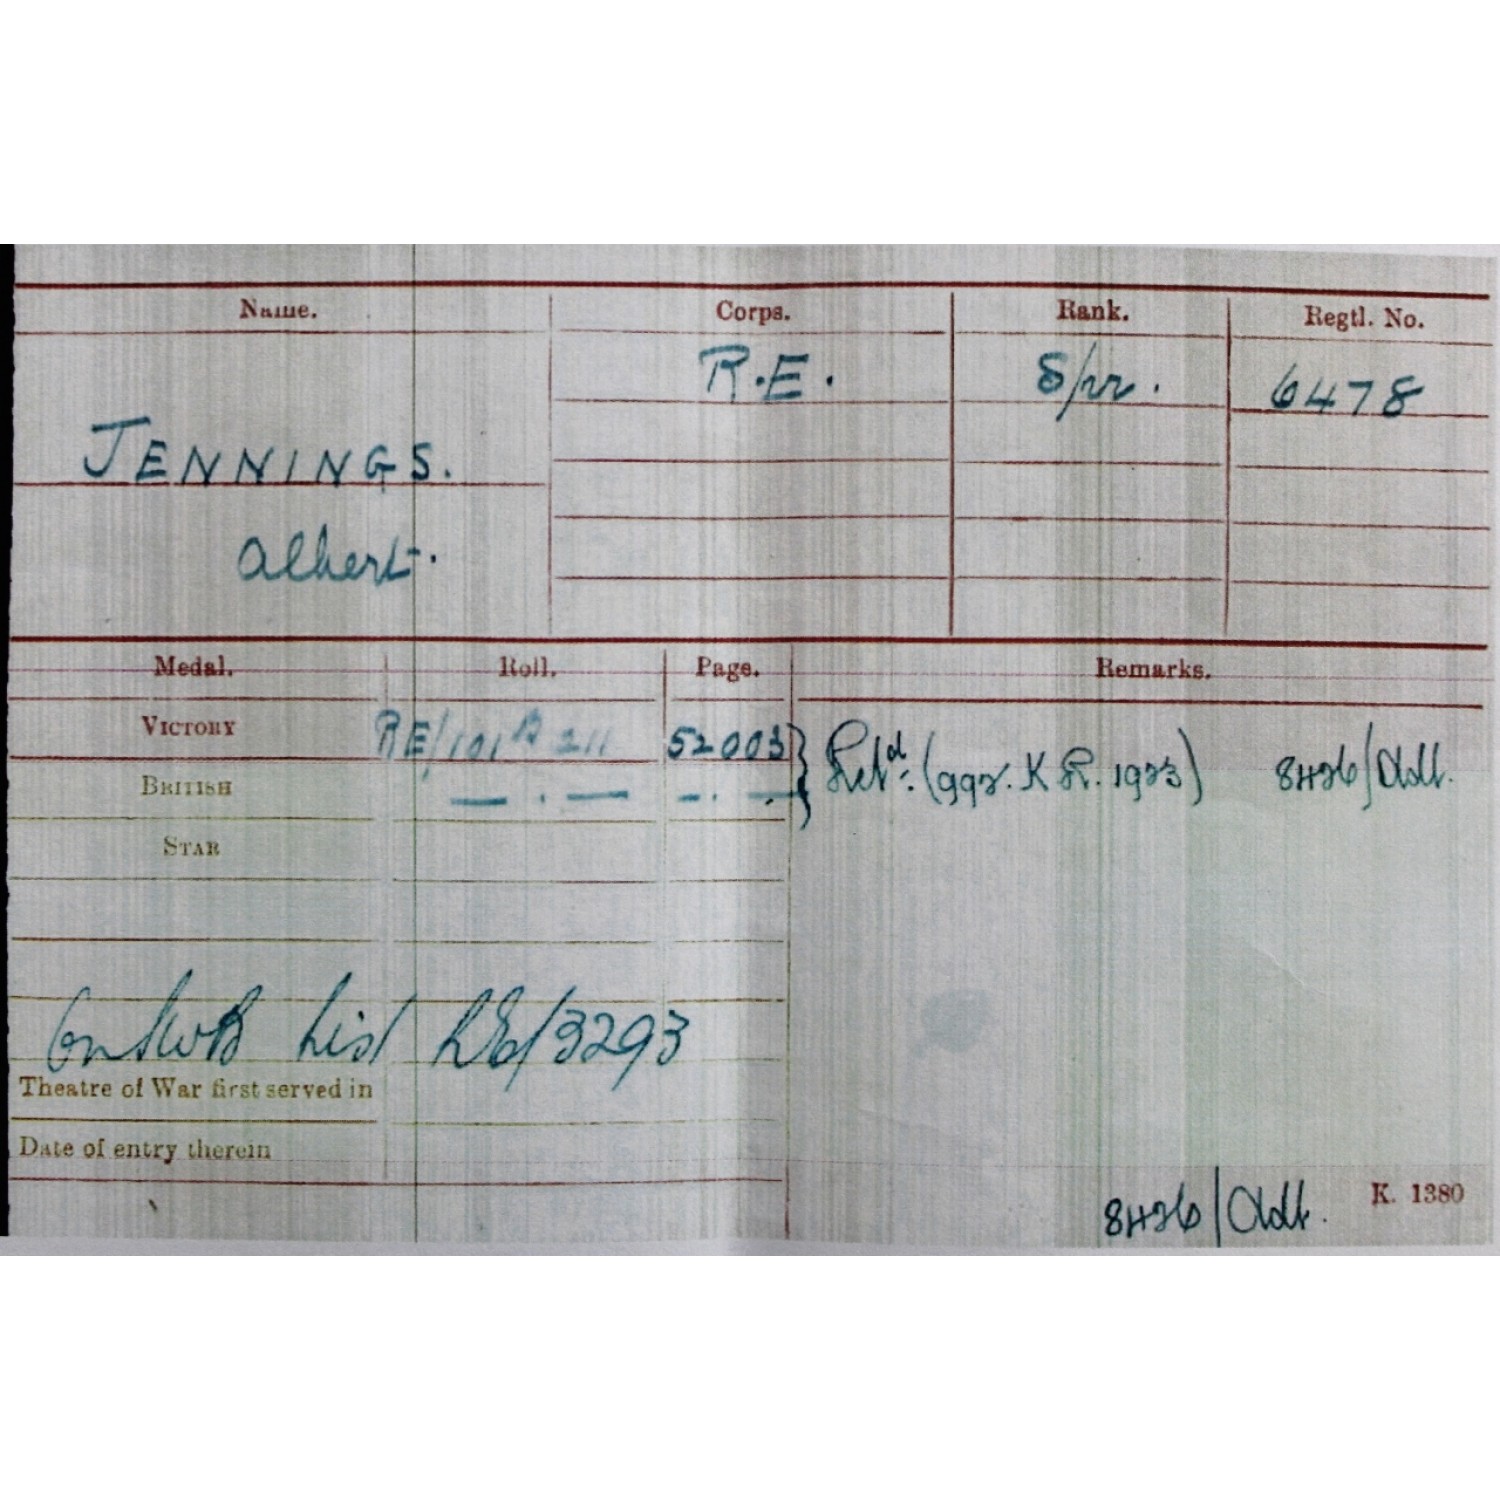 Name. Corps. Rank. Regtl. No.
R.E. Spr. 6478
JENNINGS.
Albert.
Medal. Roll. Page. Remarks.
VICTORY RE/101 B 211 52003 } Retd. (992. K.R. 1923) 8426/Adt.
BRITISH — . — — . —
STAR
On SWB List RE/3293
Theatre of War first served in
Date of entry therein
8426/Adt. K. 1380